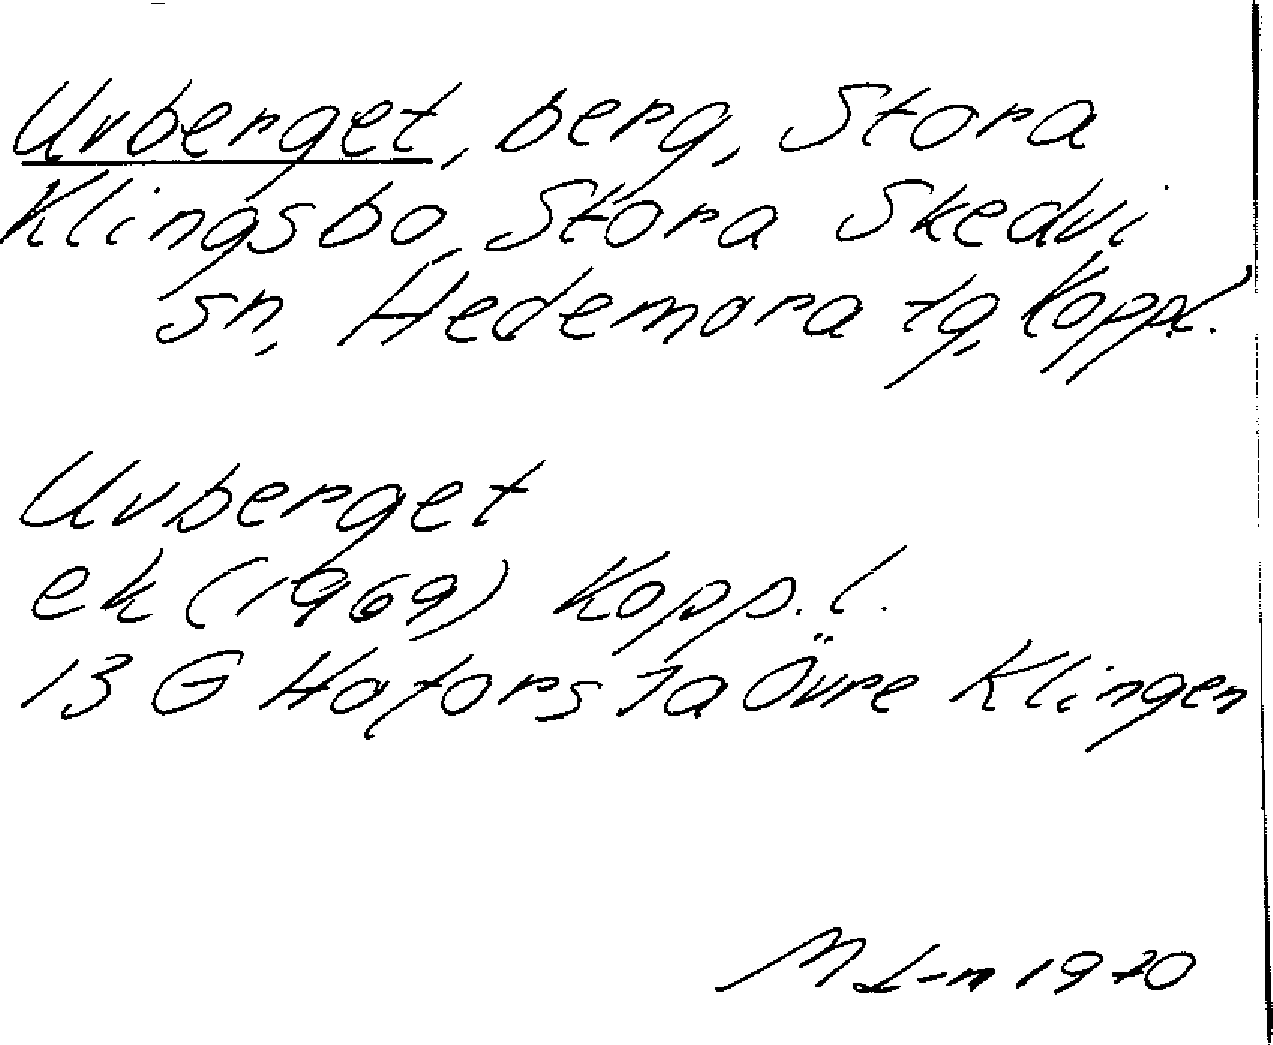 Uvberget, berg, Stora
Klingsbo, Stora Skedvi
sn, Hedemora tg, Kopp.l.
Uvberget
ek (1969) Kopp.l.
13 G Hofors 7a Övre Klingen
M L-n 1970